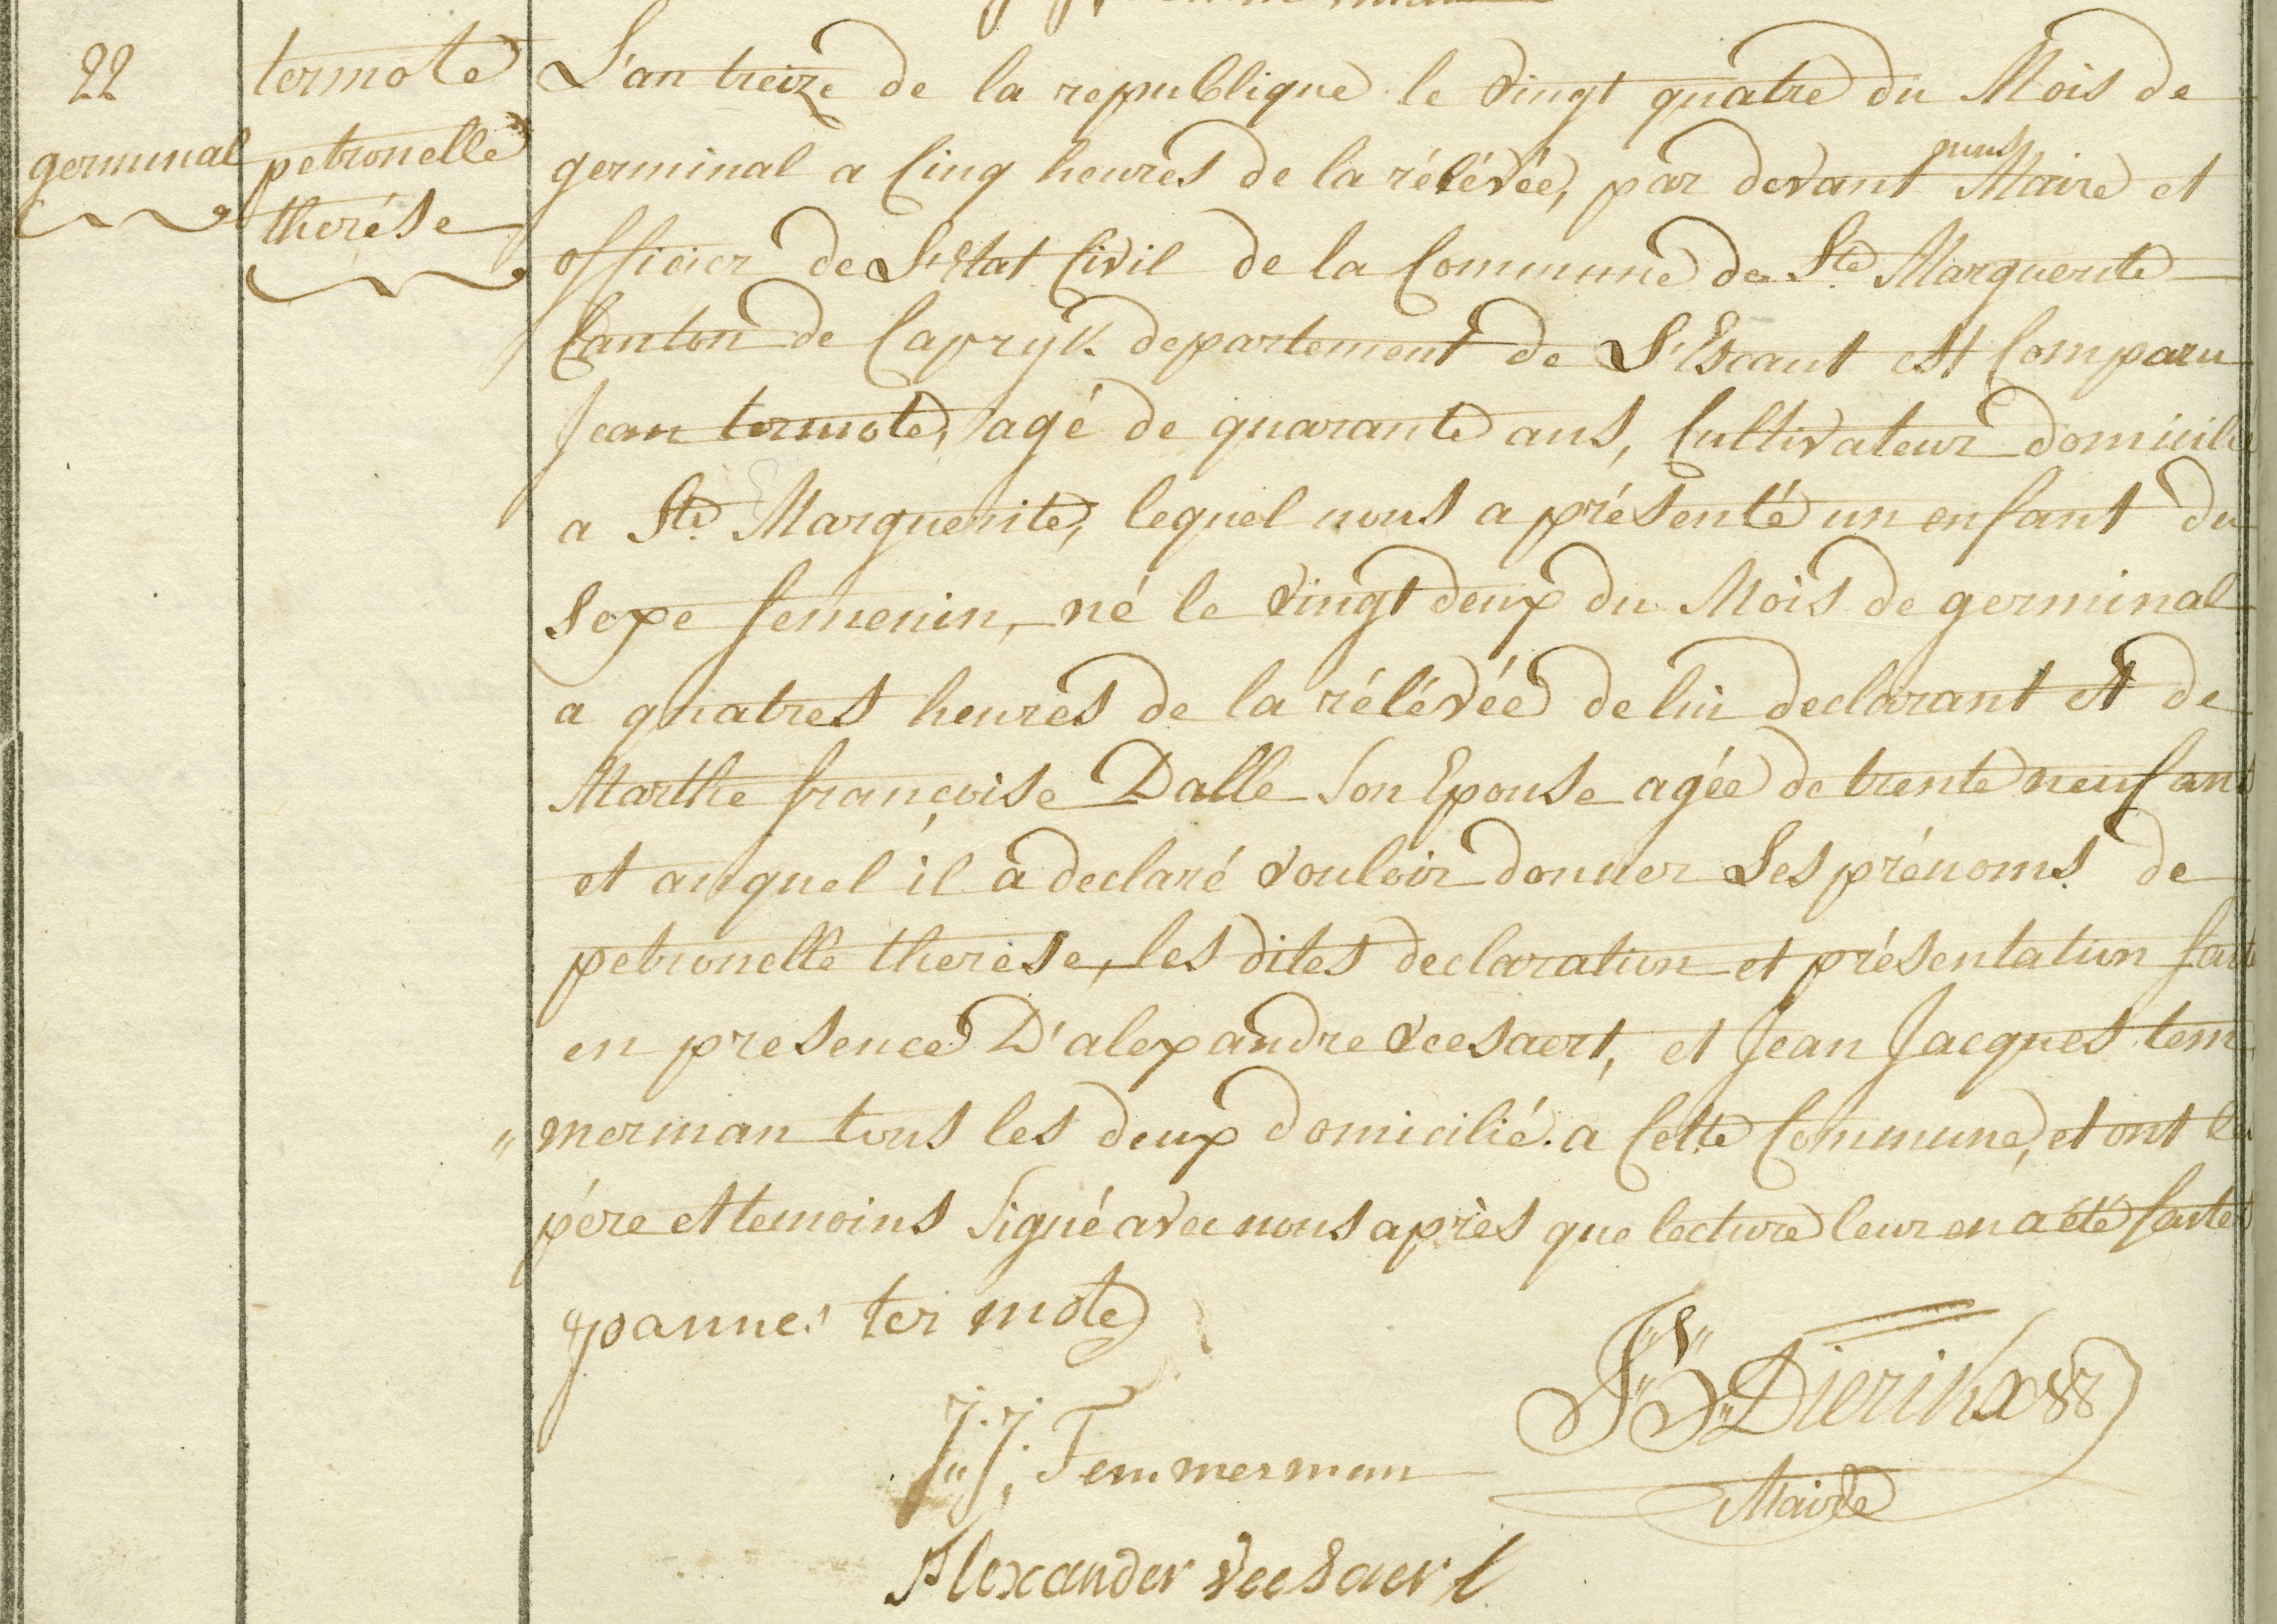 22
germinal
termote
petronelle
therése
L'an treize de la republique le vingt quatre du Mois de
germinal a Cinq heures de la rélévée, par devant nous Maire et
officier de L'Etat Civil de la Commune de Ste Marguerite
Canton de Capryk departement de L'Escaut est Comparu
Jean termote, agé de quarante ans, Cultivateur domicilié
a Ste Marguerite, lequel nous a présenté un enfant du
Sexe femenin, né le vingt deux du Mois de germinal
a quatres heures de la rélévée de lui declarant et de
Marthe françoise Dalle Son Epouse agée de trente neuf ans
et auquel il a declaré vouloir donner Les prénoms de
petronelle therese, les dites declaration et présentation faite
en presence D'alexandre veesaert, et Jean Jacques tem
"merman tous les deux domicilié a Cette Commune, et ont le
pére et temoins Signé avec nous après que lecture leur en a été faite
joannes ter mote
J: S: Dierikx
Maire
J: J: Temmerman
Alexander veesaert